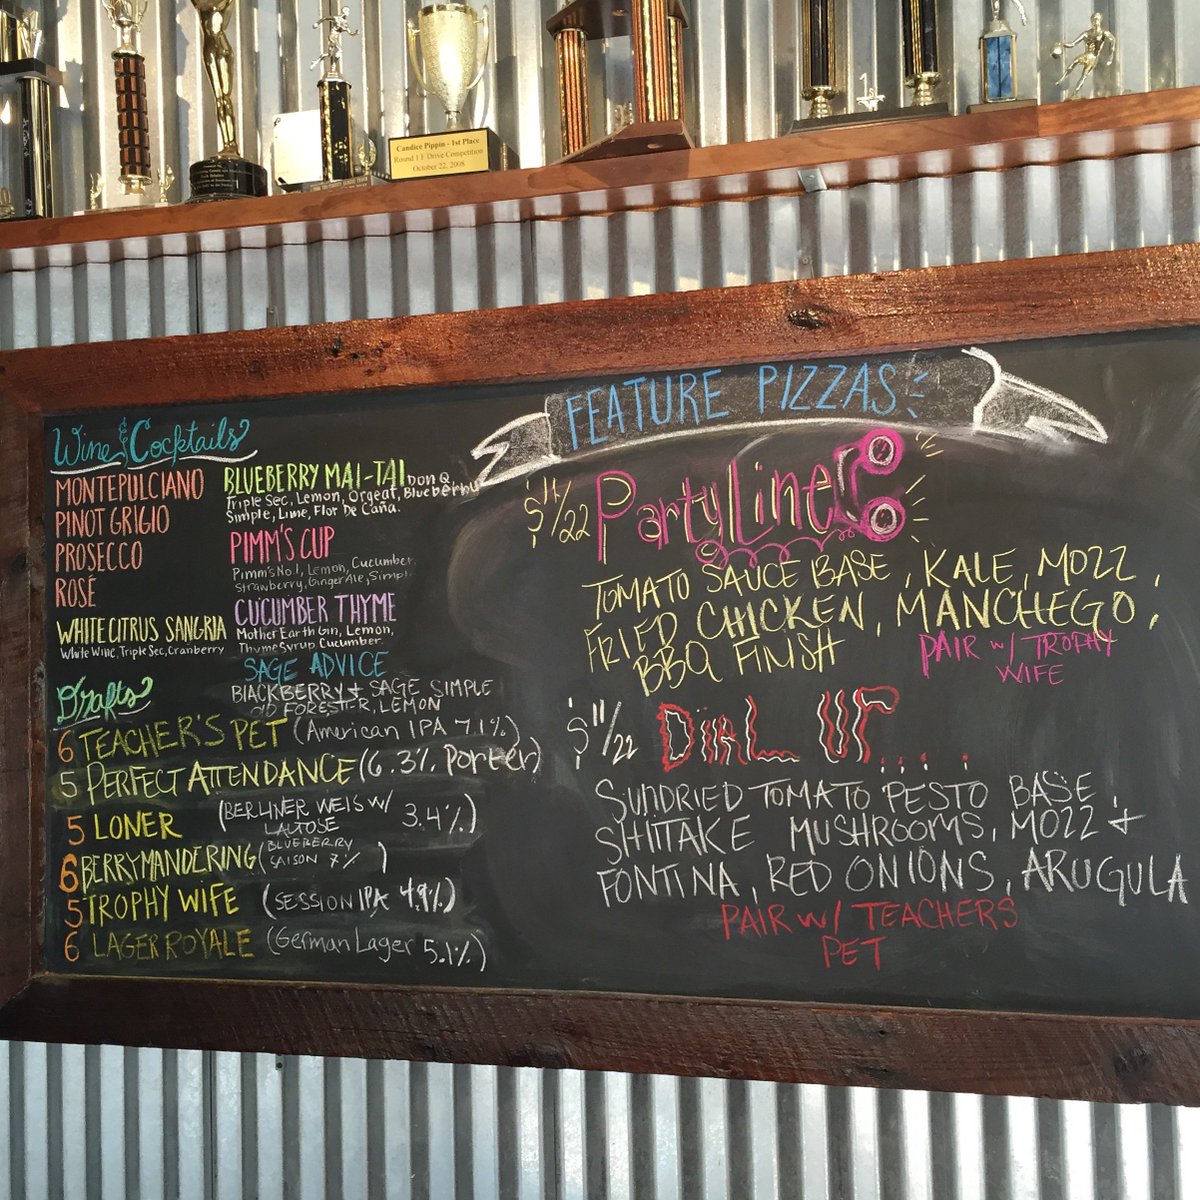 Candice Pippin - 1st Place
Round 1 F Drive Competition
October 22, 2008
1
Wine & Cocktails
MONTEPULCIANO
PINOT GRIGIO
PROSECCO
ROSÉ
WHITE CITRUS SANGRIA
White Wine, Triple Sec, Cranberry
BLUEBERRY MAI-TAI Don Q,
Triple Sec, Lemon, Orgeat, Blueberry
Simple, Lime, Flor De Caña.
PIMM'S CUP
Pimm's No.1, Lemon, Cucumber,
Strawberry, Ginger Ale, Simple
CUCUMBER THYME
Mother Earth Gin, Lemon,
Thyme Syrup, Cucumber.
SAGE ADVICE
BLACKBERRY + SAGE SIMPLE
OLD FORESTER, LEMON
Drafts
6 TEACHER'S PET (American IPA 7.1%)
5 PERFECT ATTENDANCE (6.3% Porter)
5 LONER (BERLINER WEIS W/ LACTOSE 3.4%)
6 BERRYMANDERING (BLUEBERRY SAISON 7%)
5 TROPHY WIFE (SESSION IPA 4.9%)
6 LAGER ROYALE (German Lager 5.1%)
FEATURE PIZZAS
$11/22 Party Line
TOMATO SAUCE BASE, KALE, MOZZ,
FRIED CHICKEN, MANCHEGO,
BBQ FINISH
PAIR w/ TROPHY
WIFE
$11/22 DIAL UP....
SUNDRIED TOMATO PESTO BASE
SHIITAKE MUSHROOMS, MOZZ +
FONTINA, RED ONIONS, ARUGULA
PAIR w/ TEACHERS
PET